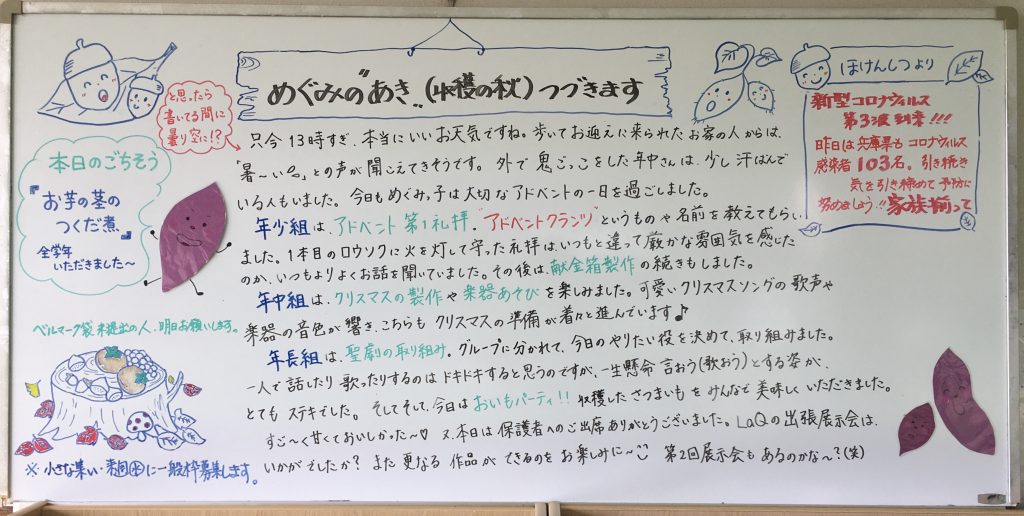 めぐみの"あき"(収穫の秋)つづきます
と思ったら
書いてる間に
曇り空に!?
只今13時すぎ、本当にいいお天気ですね。歩いてお迎えに来られたお家の人からは、
「暑〜い」との声が聞こえてきそうです。外で鬼ごっこをした年中さんは、少し汗ばんで
いる人もいました。今日もめぐみっ子は大切なアドベントの一日を過ごしました。
年少組は、アドベント第1礼拝。"アドベントクランツ"というものや名前を教えてもらい
ました。1本目のロウソクに火を灯して守った礼拝は、いつもと違って厳かな雰囲気を感じた
のか、いつもよりよくお話を聞いていました。その後は、献金箱製作の続きもしました。
年中組は、クリスマスの製作や楽器あそびを楽しみました。可愛いクリスマスソングの歌声や
楽器の音色が響き、こちらもクリスマスの準備が着々と進んでいます♪
年長組は、聖劇の取り組み。グループに分かれて、今日のやりたい役を決めて、取り組みました。
一人で話したり歌ったりするのはドキドキすると思うのですが、一生懸命言おう(歌おう)とする姿が、
とてもステキでした。そしてそして、今日はおいもパーティ!!収穫したさつまいもをみんなで美味しくいただきました。
すご〜く甘くておいしかった〜♡ 又、本日は保護者へのご出席ありがとうございました。LaQの出張展示会は、
いかがでしたか?また更なる作品ができるのをお楽しみに〜 第2回展示会もあるのかな〜?(笑)
本日のごちそう
『お芋の茎の
つくだ煮』
全学年
いただきました〜
ベルマーク袋未提出の人、明日お願いします。
※小さな集い・来週㊍に一般枠募集します。
ほけんしつより
新型コロナウィルス
第3波到来!!!
昨日は兵庫県もコロナウィルス
感染者103名。引き続き
気を引き締めて予防に
努めましょう!!家族揃って